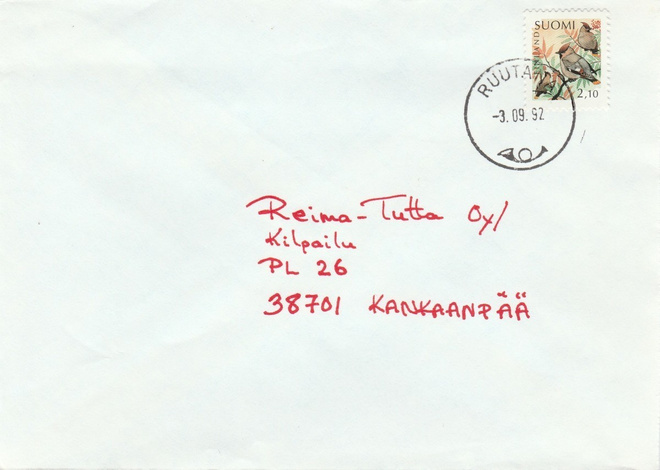 SUOMI
FINLAND
2,10
RUUTANA
-3.09.92
Reima-Tutta Oy/
Kilpailu
PL 26
38701 KANKAANPÄÄ